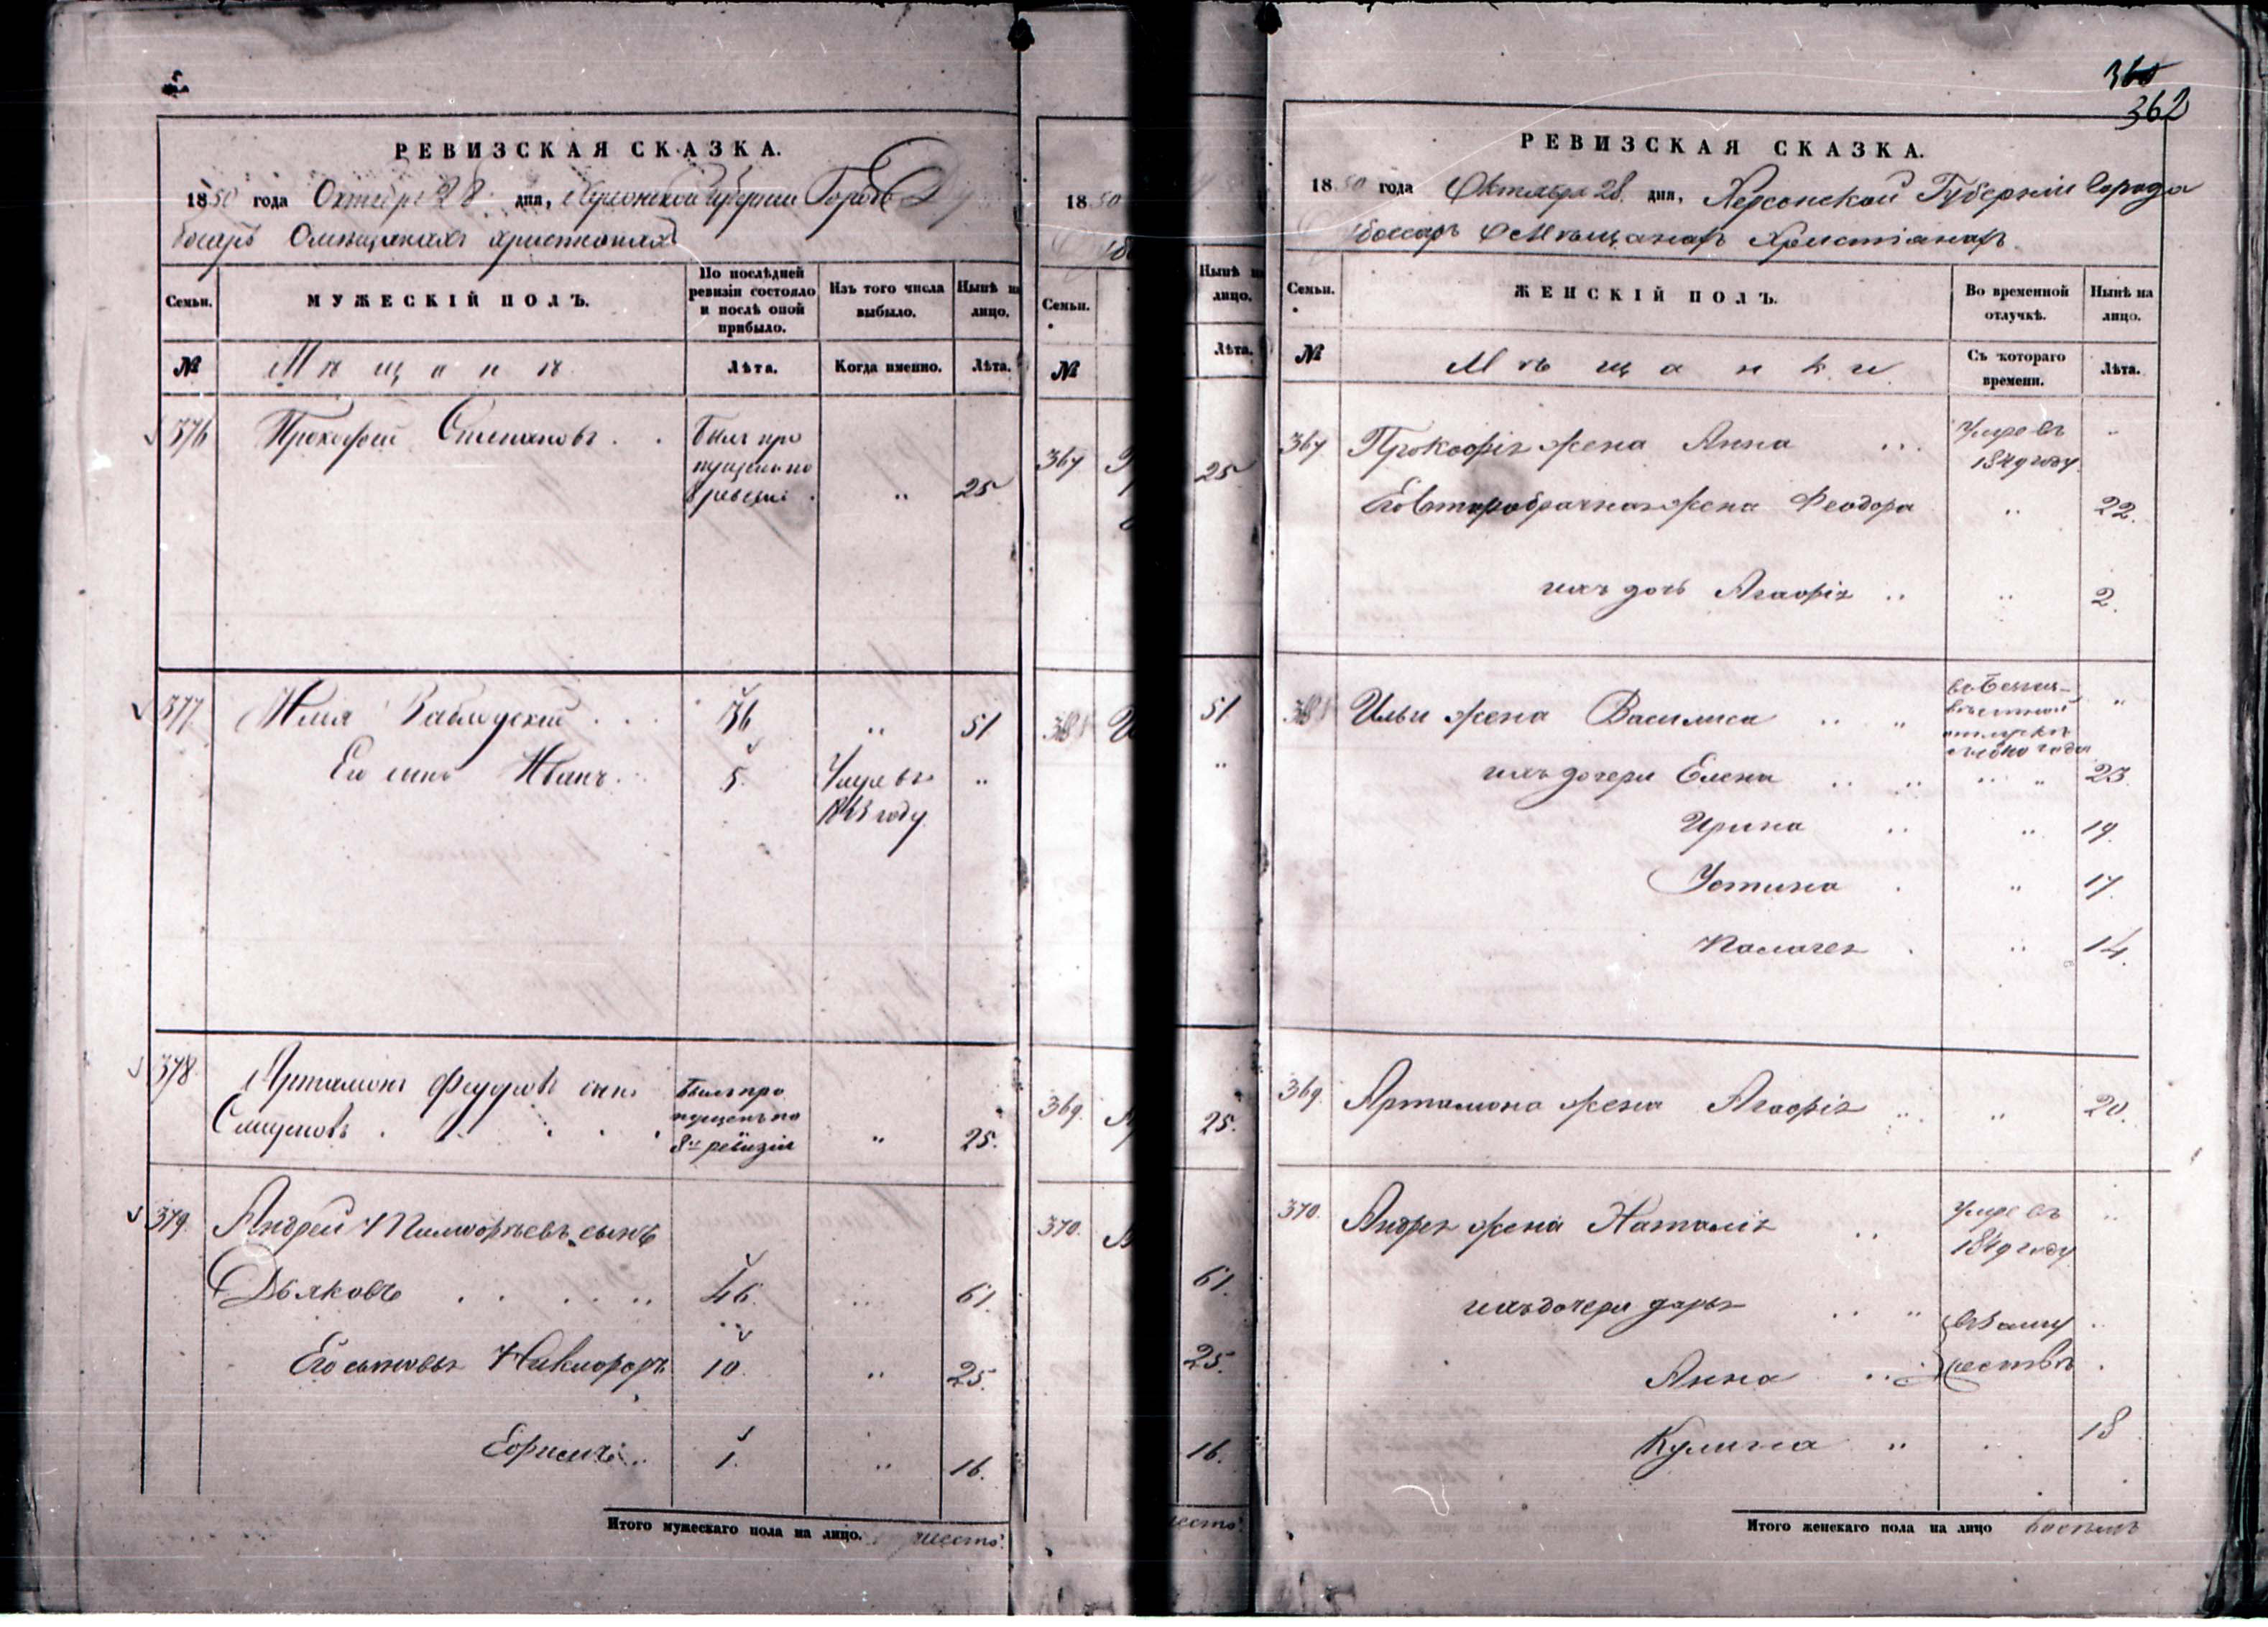 РЕВИЗСКАЯ СКАЗКА.
1850 года Октября 28 дня, Херсонской Губернии Города Ду
босаръ О мѣщанахъ христианахъ
Семьи.
МУЖЕСКІЙ ПОЛЪ.
По послѣдней ревизіи состояло и послѣ оной прибыло.
Изъ того числа выбыло.
Нынѣ на лицо.
№
Мѣщане
Лѣта.
Когда именно.
Лѣта.
376 Прокофей Степановъ
Былъ про
пущенъ по
8 ревизіи " 25
377 Илья 36 " 51
Его сынъ Иванъ 5 Умре въ "
1843 году
378 Артамонъ Федоровъ сынъ
Былъ про
пущенъ по
8й ревизіи " 25.
379. Андрей Тимофѣевъ сынъ
Дьяковъ 46. " 61.
Его сыновья Никифоръ 10 " 25.
Ефимъ 1. " 16.
Итого мужескаго пола на лицо. шесть.
1850
Семьи.
№
367
381
369.
370.
Нынѣ на
лицо.
Лѣта.
25
51
"
25.
61.
25.
16.
360
362
РЕВИЗСКАЯ СКАЗКА.
1850 года Октября 28 дня, Херсонской Губерніи Города
Дубоссаръ О Мѣщанахъ Христіанахъ
Семьи.
ЖЕНСКІЙ ПОЛЪ.
Во временной отлучкѣ.
Нынѣ на лицо.
№
Мѣщанки
Съ котораго времени.
Лѣта.
367 Прокофія жена Анна Умре въ "
1849 году
Его второбрачная жена Феодора " 22.
ихъ дочь Агафія " 2.
381 Ильи жена Василиса "
отлучкѣ
ихъ дочери Елена " 23.
Ирина " 19.
Устина " 17.
Палагея " 14.
369. Артамона жена Агафія " 20.
370. Андрея жена Наталія Умре въ "
1849 году
ихъ дочери Дарья въ заму "
Анна жествѣ
Кулина " 18
Итого женскаго пола на лицо восемь